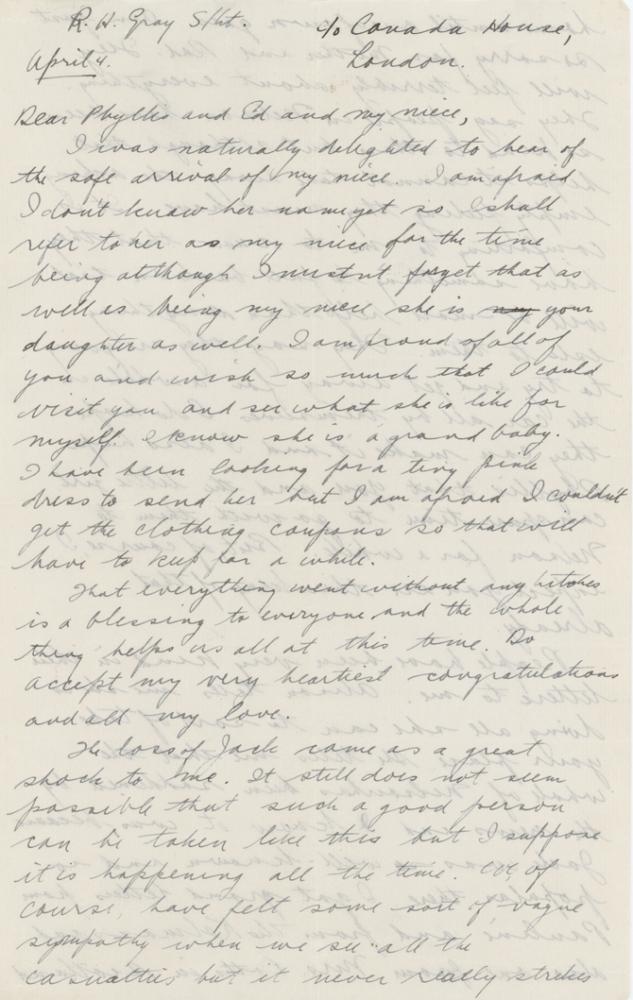 R. H. Gray S/Lt. c/o Canada House,
April 4. London.
Dear Phyllis and Ed and my niece,
I was naturally delighted to hear of
the safe arrival of my niece. I am afraid
I don't know her name yet so I shall
refer to her as my niece for the time
being although I mustn't forget that as
well as being my niece she is my your
daughter as well. I am proud of all of
you and wish so much that I could
visit you and see what she is like for
myself. I know she is a grand baby.
I have been looking for a tiny pink
dress to send her but I am afraid I couldn't
get the clothing coupons so that will
have to keep for a while.
That everything went without any hitches
is a blessing to everyone and the whole
thing helps us all at this time. Do
accept my very heartiest congratulations
and all my love.
The loss of Jack came as a great
shock to me. It still does not seem
possible that such a good person
can be taken like this but I suppose
it is happening all the time. We, of
course, have felt some sort of vague
sympathy when we see all the
casualties but it never really strikes